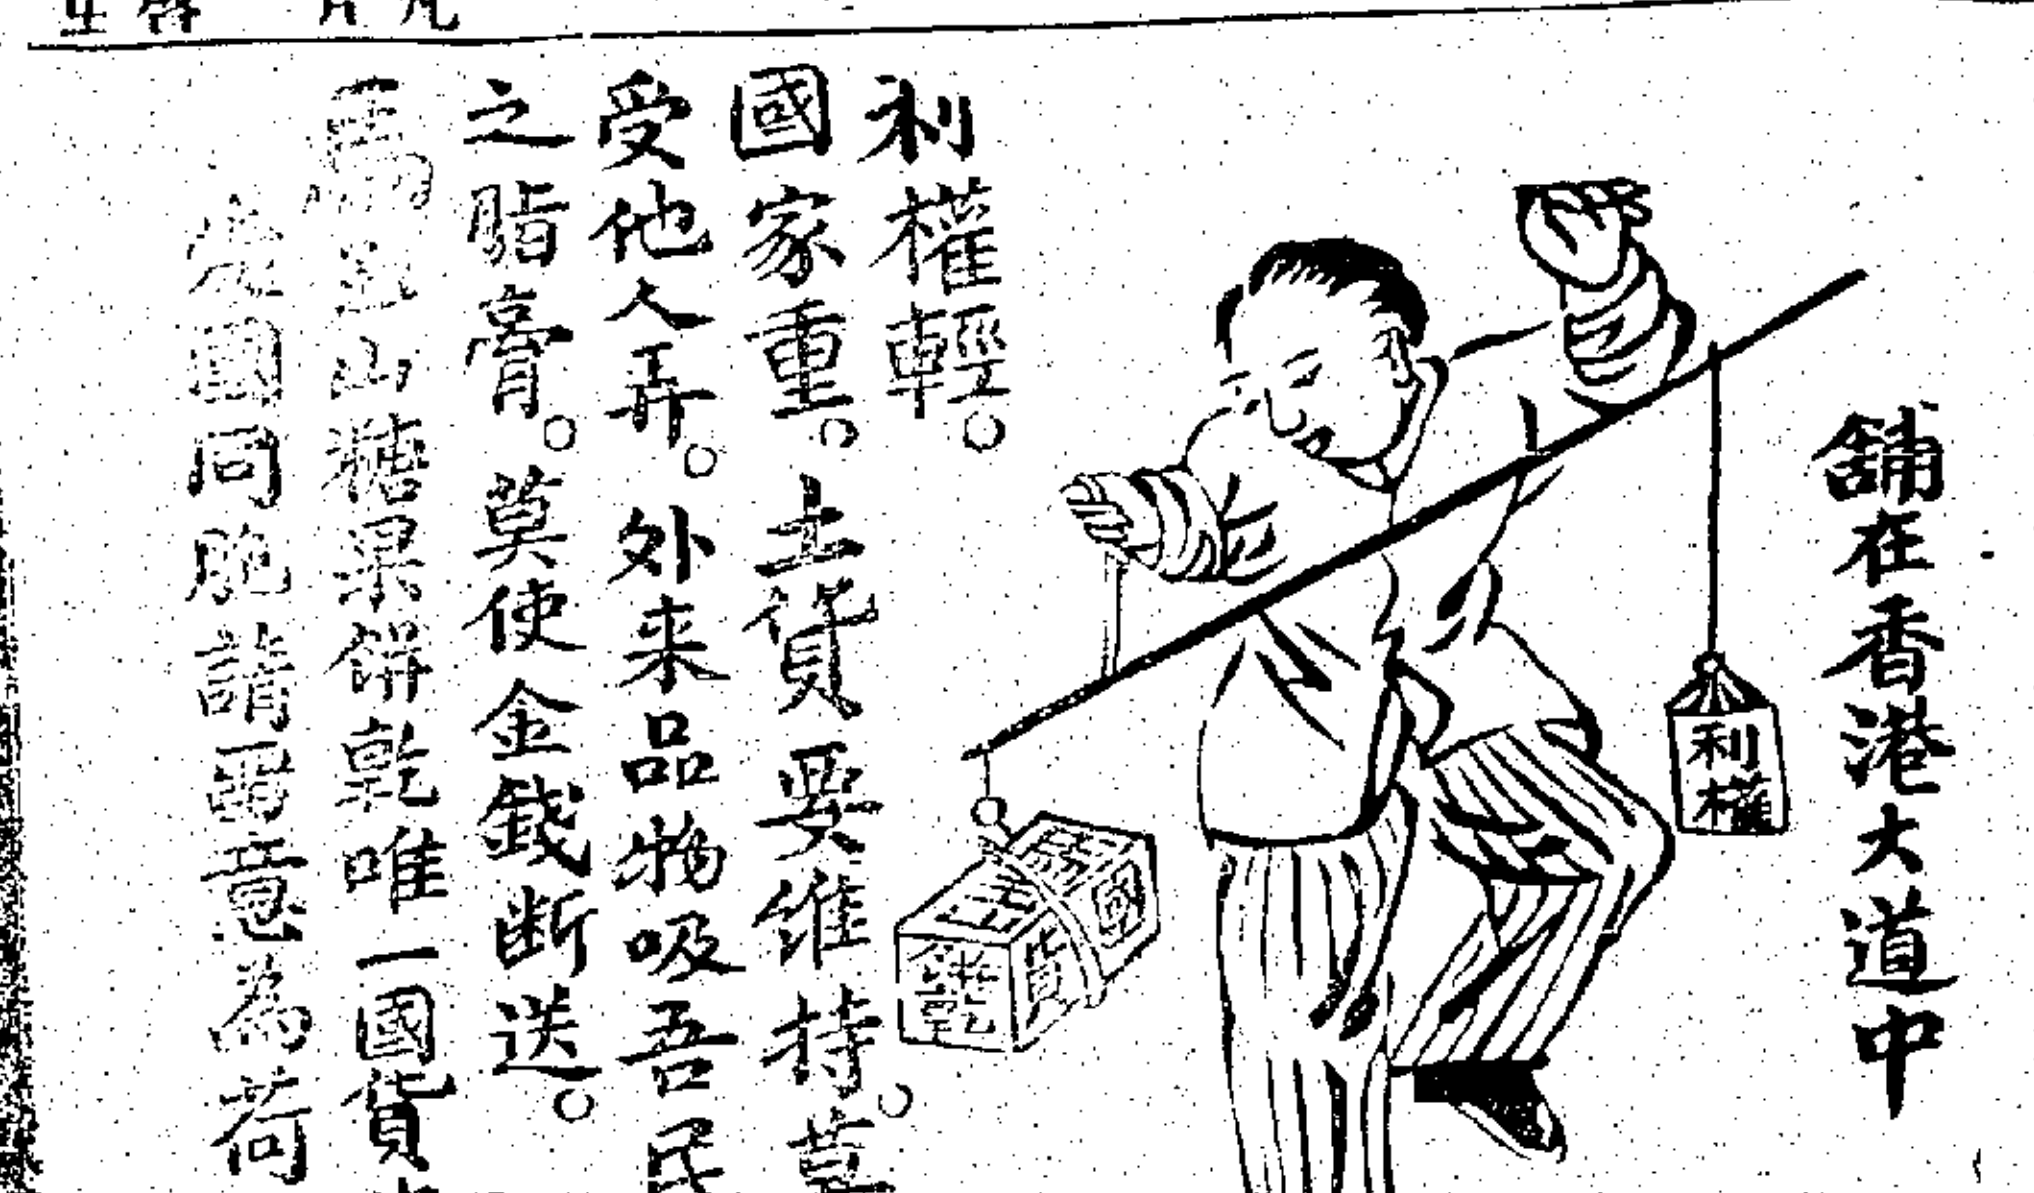 舖在香港大道中
利權
國貨
餅乾
利權輕。
國家重。土貨要維持。莫
受他人弄。外来品物吸吾民
之脂膏。莫使金錢断送。
馬玉山糖菓餅乾唯一國貨
愛國同胞請畱意為荷